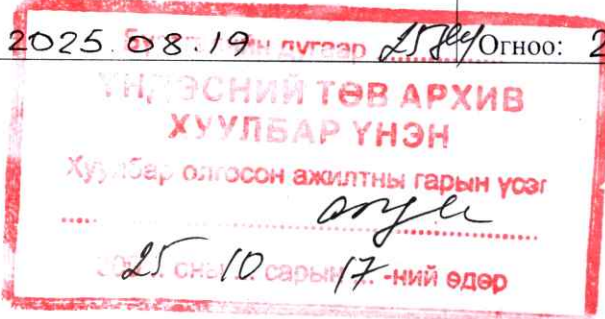 2025.08.19 дугаар Огноо: 2
ҮНДЭСНИЙ ТӨВ АРХИВ
ХУУЛБАР ҮНЭН
Хуулбар олгосон ажилтны гарын үсэг
25 оны 10 сарын 17-ний өдөр